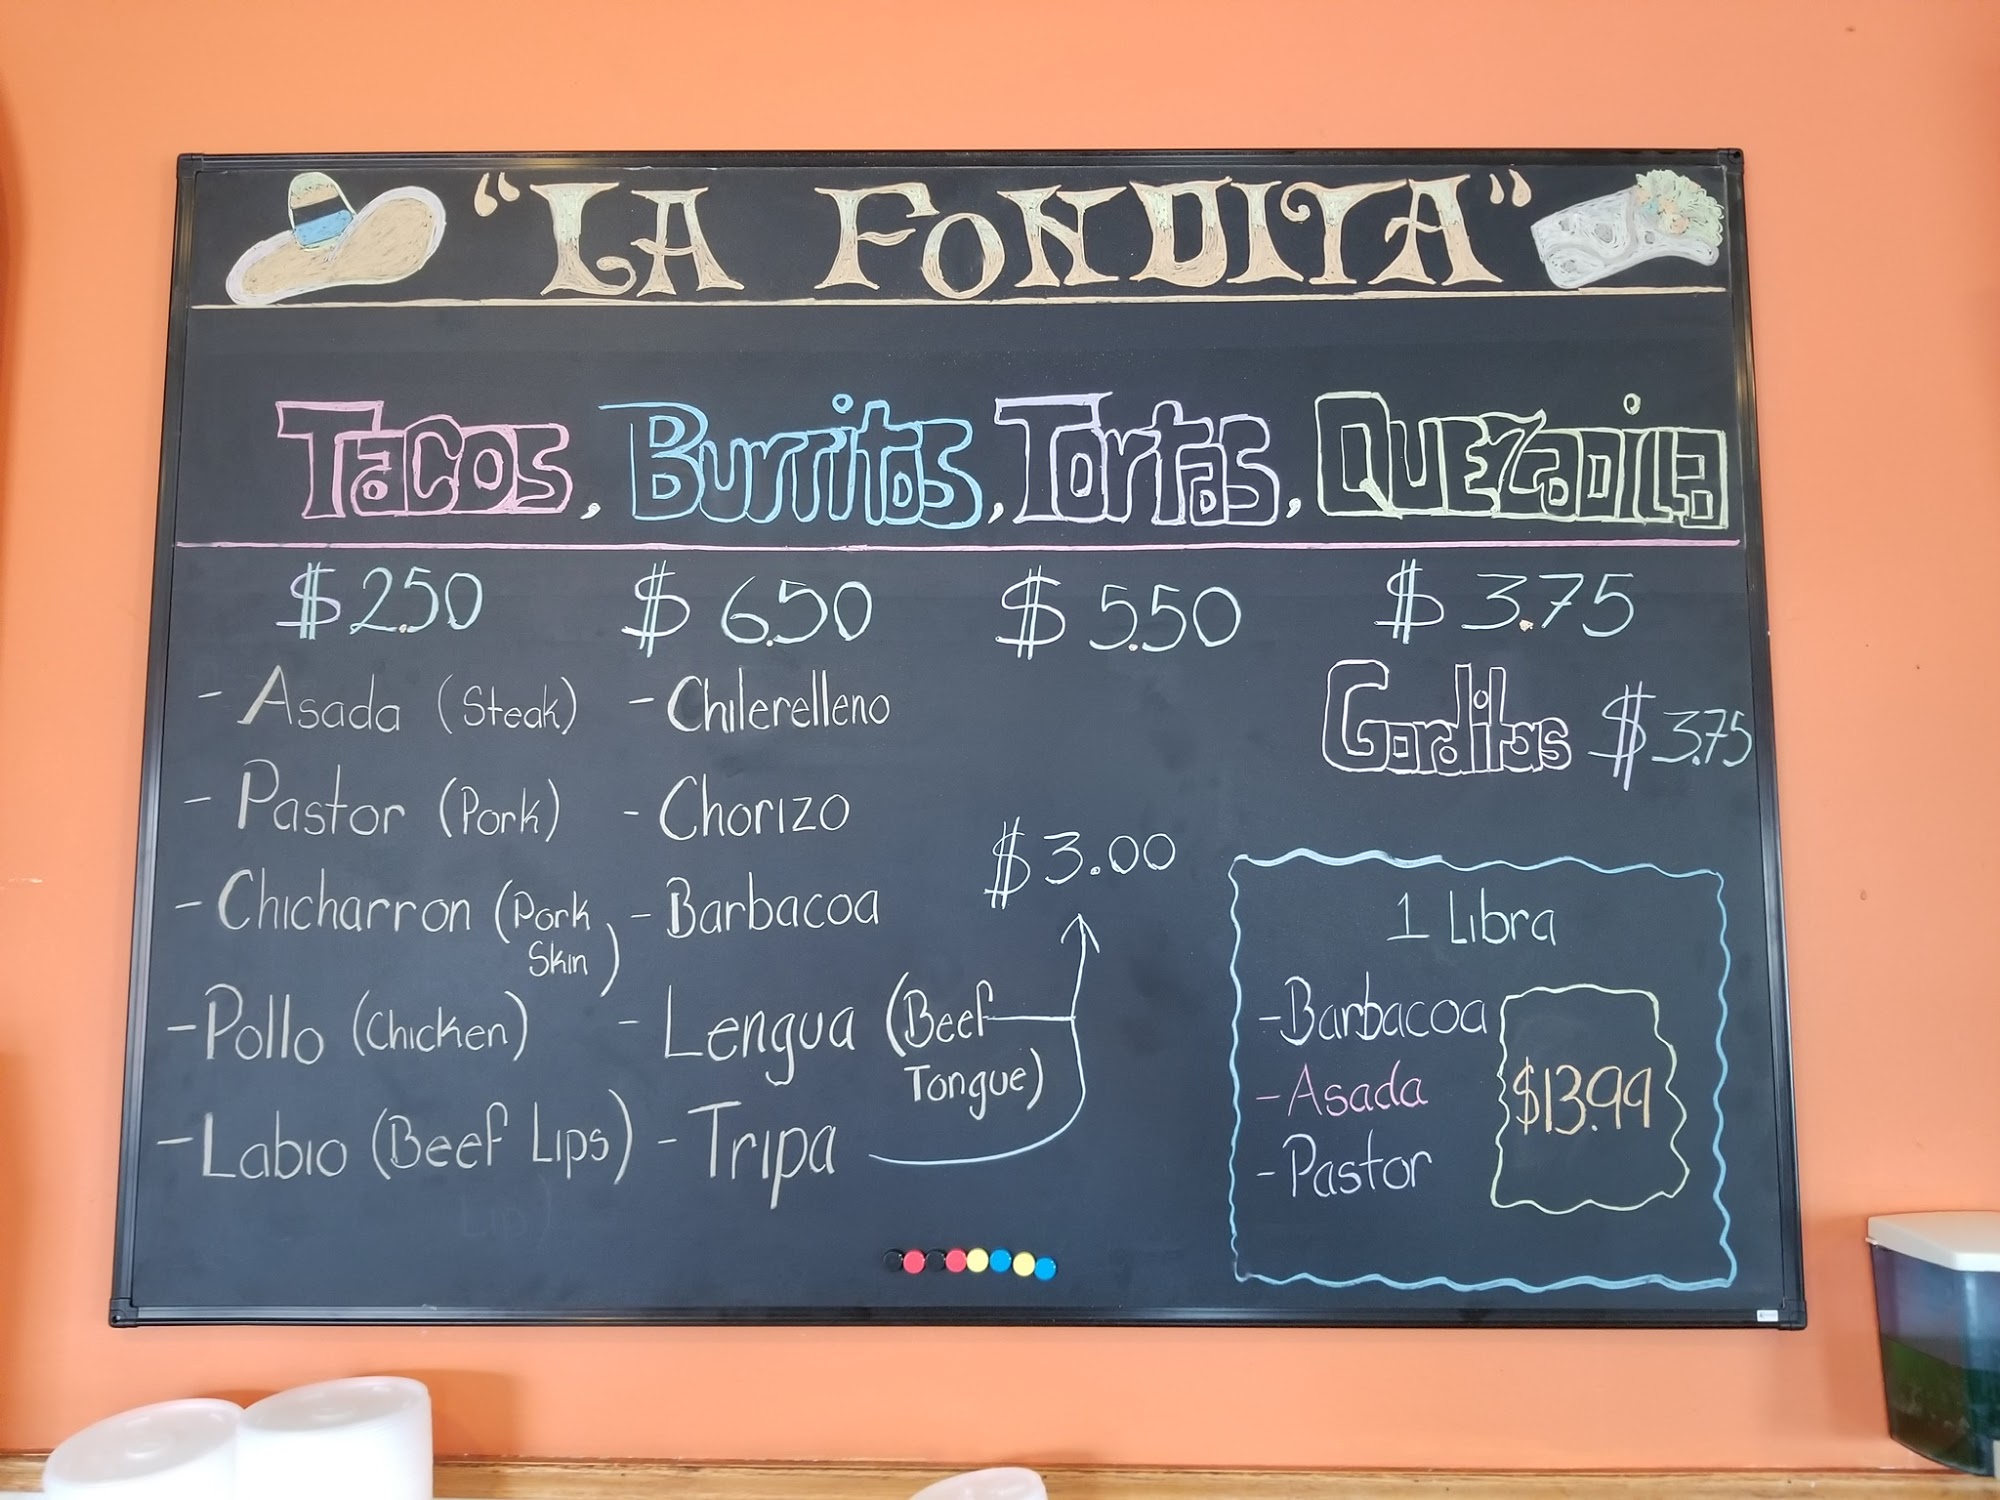 "LA FONDITA"
Tacos, Burritos, Tortas, QUEZadilla
$2.50 $6.50 $5.50 $3.75
- Asada (Steak) - Chilerelleno
Gorditas $3.75
- Pastor (Pork) - Chorizo
$3.00
- Chicharron (Pork Skin) - Barbacoa
- Pollo (Chicken) - Lengua (Beef Tongue)
- Labio (Beef Lips) - Tripa
1 Libra
- Barbacoa
- Asada $13.99
- Pastor